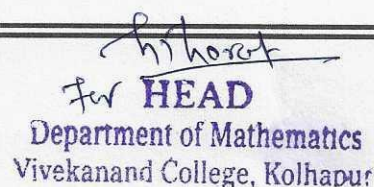 For HEAD
Department of Mathematics
Vivekanand College, Kolhapur